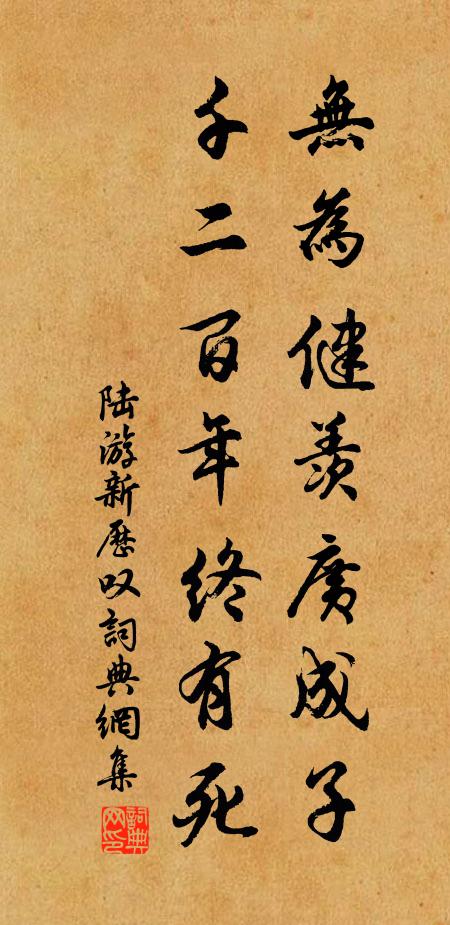 無為健羨廣成子
千二百年終有死
陆游新歷叹詞典網集
詞典网印